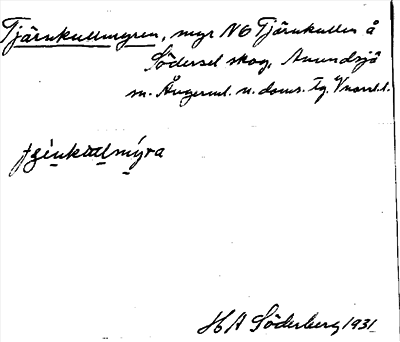 Tjärnkullmyren, myr NO Tjärnkullen å
Södersel skog, Anundsjö
sn. Ångerml. n. doms. Tg. Vnorrl. l.
H A Söderberg 1931